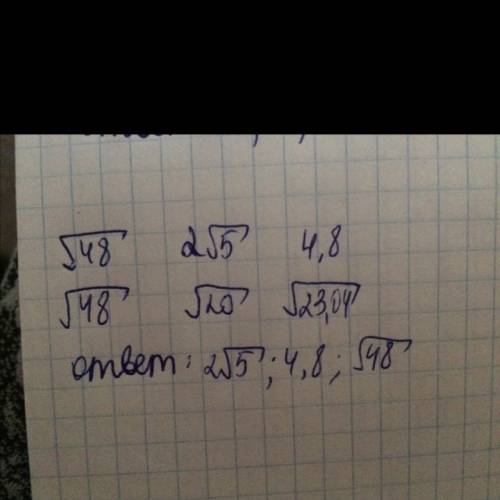 √48 2√5 4,8
√48 √20 √23,04
ответ: 2√5; 4,8; √48